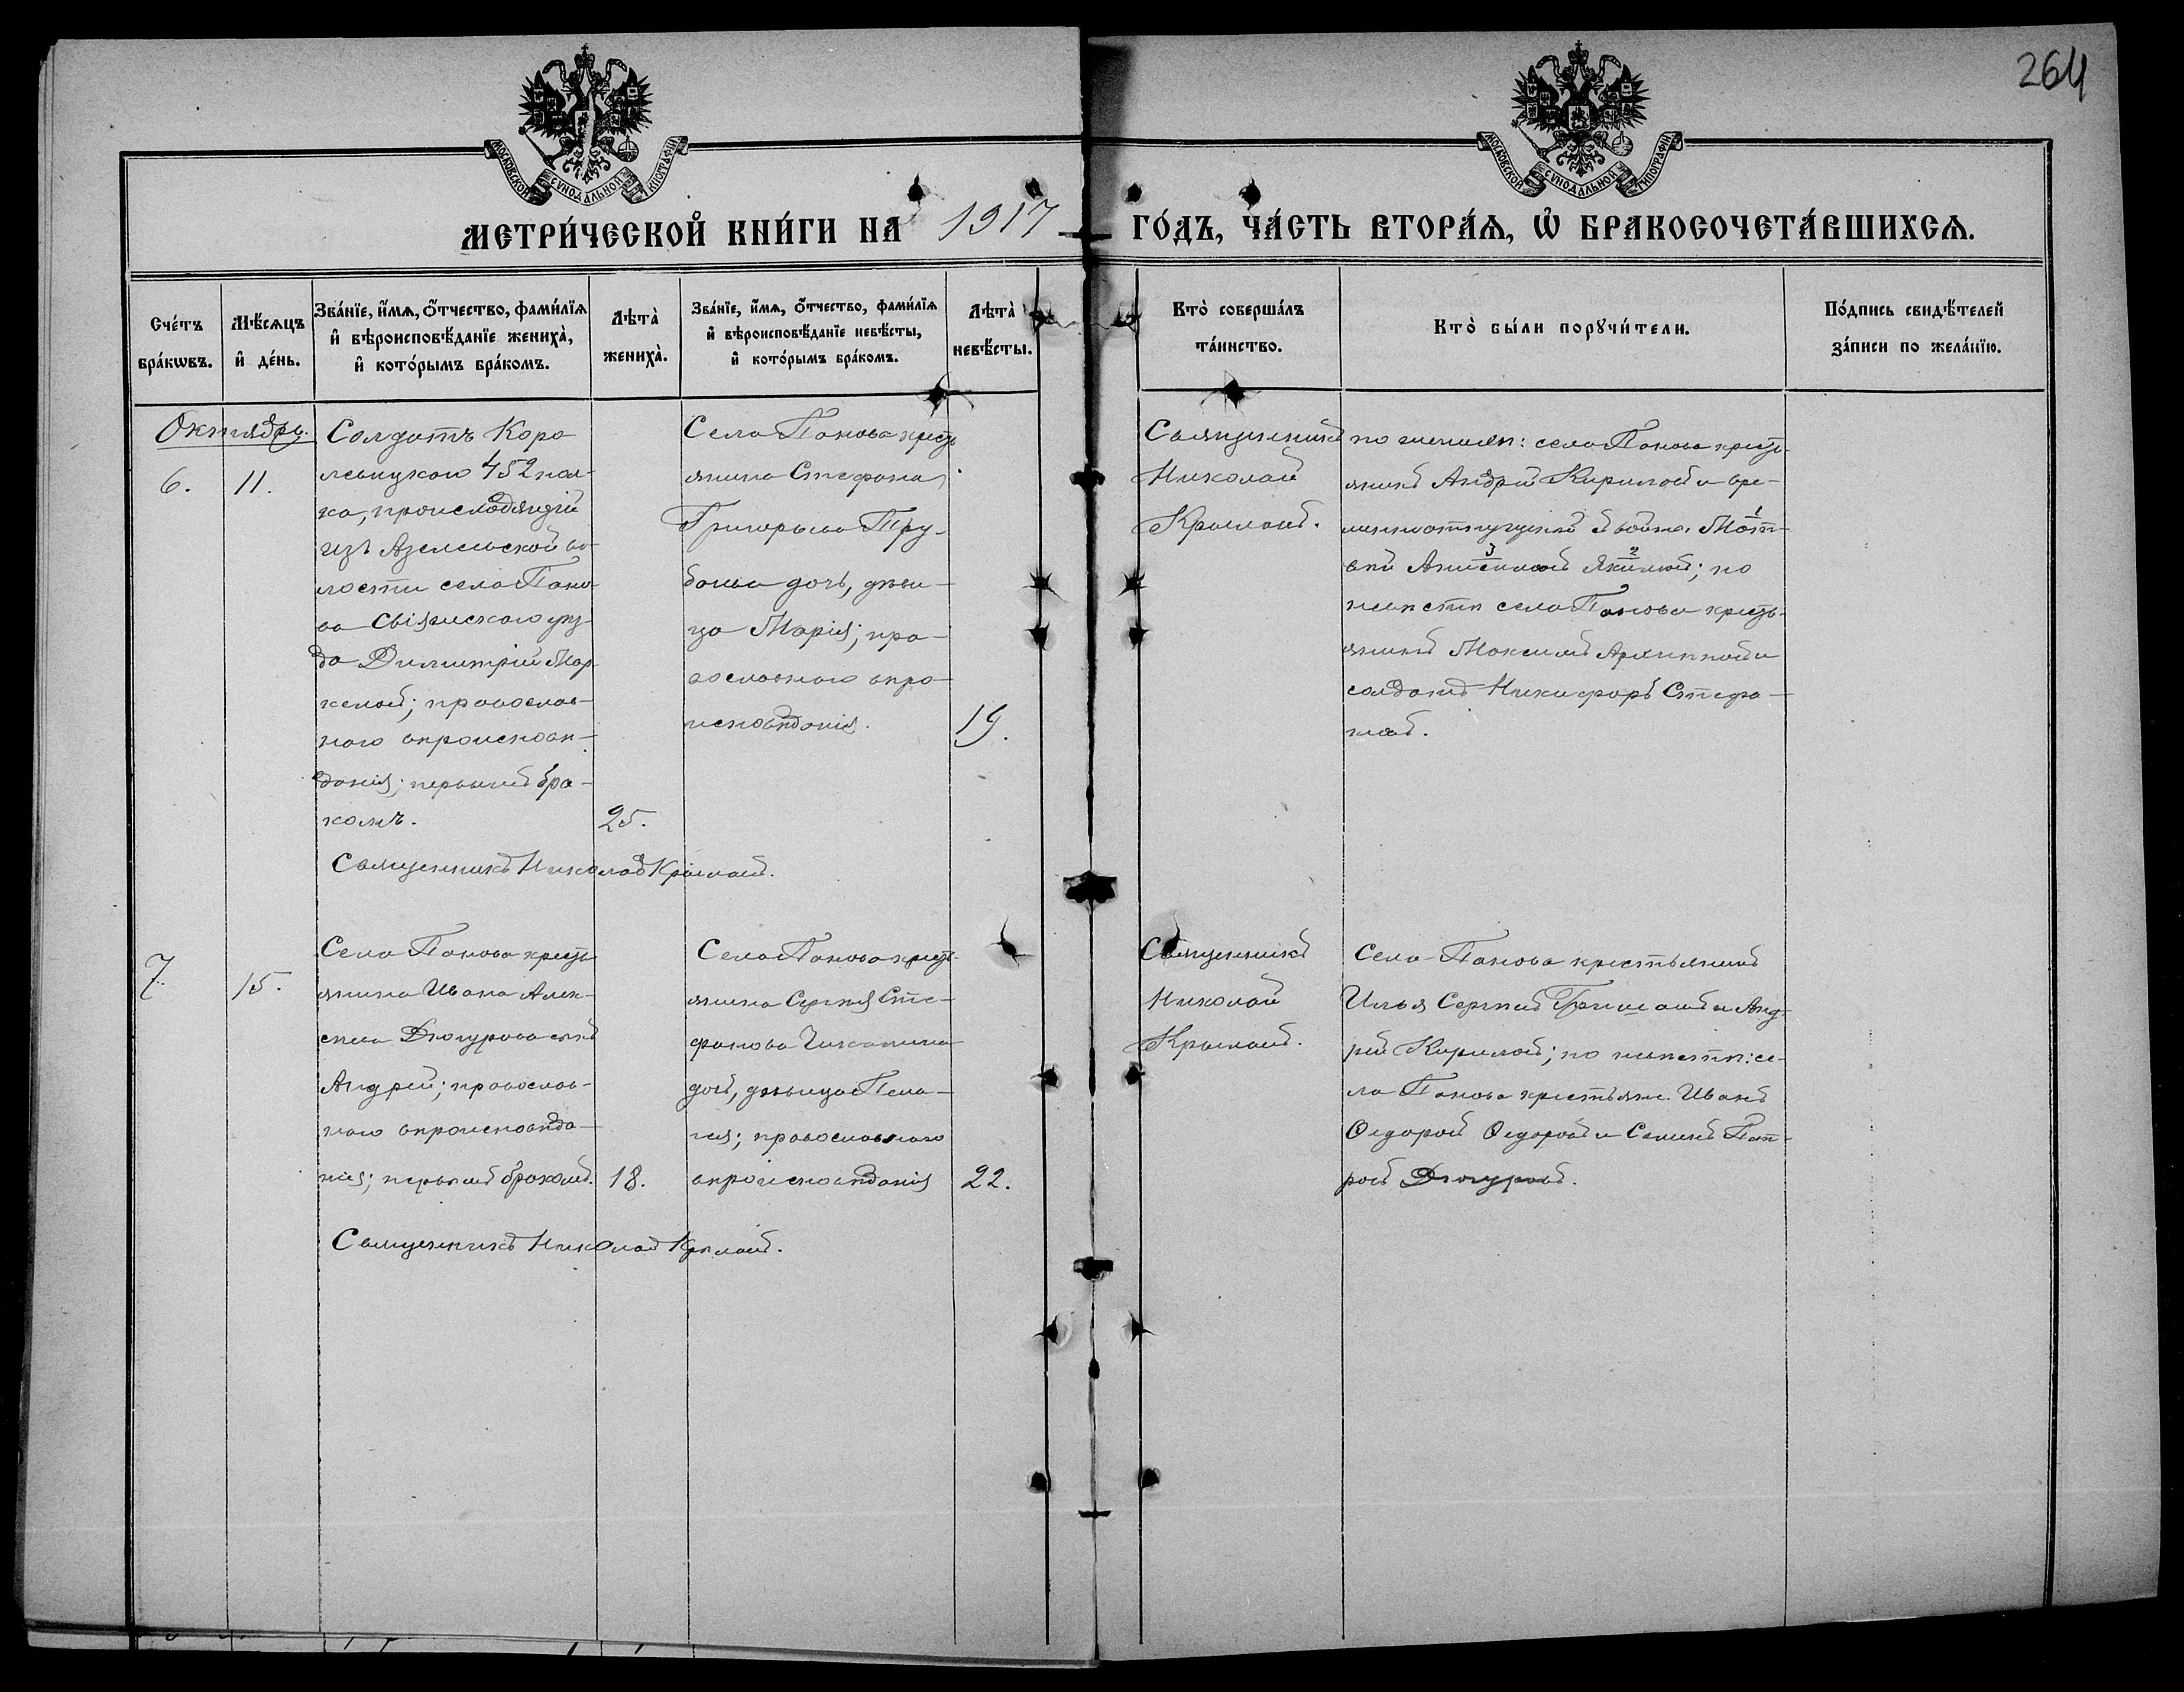 264
МОСКОВСКОЙ СѴНОДАЛЬНОЙ ТИПОГРАФІИ
МОСКОВСКОЙ СѴНОДАЛЬНОЙ ТИПОГРАФІИ
МЕТРИ́ЧЕСКОЙ КНИ́ГИ НА 1917
ГО́ДЪ, ЧА́СТЬ ВТОРА́Ѧ, Ѡ҆ БРАКОСОЧЕТА́ВШИХСѦ.
Сче́тъ
бра́кѡвъ.
Мѣ́сѧцъ
и҆ де́нь.
Зва́нїе, и҆́мѧ, ѻ҆́тчество, фами́лїѧ
и҆ вѣроисповѣ́данїе жениха̀,
и҆ кото́рымъ бра́комъ.
Лѣта̀
жениха̀.
Зва́нїе, и҆́мѧ, ѻ҆́тчество, фами́лїѧ
и҆ вѣроисповѣ́данїе невѣ́сты,
и҆ кото́рымъ бра́комъ.
Лѣта̀
невѣ́сты.
Кто̀ соверша́лъ
та́инство.
Кто̀ бы́ли порꙋчи́тели.
По́дпись свидѣ́телей
за́писи по жела́нїю.
Октябрь.
6.
11.
Солдатъ Коро
левецкого 452 пол-
ка, происходящій
изъ Азелеевской во-
лости села Пано-
ва Свіяжскаго уѣз-
да Димитрій Мар
келовъ; православ-
наго вѣроисповѣ-
данія; первымъ бра-
комъ.
25.
Села Панова кресть
янина Стефана
Григорьева Тру-
бова дочь, дѣви-
ца Марія; пра-
вославнаго вѣро-
исповѣданія.
19.
Священникъ
Николай
Крыловъ.
по женихѣ: села Панова кресть-
янинъ Андрей Кириловъ и вре-
менноотпущенный воинъ Мат-
вѣй Анисимовъ Якимовъ; по
невѣстѣ села Панова кресть-
янинъ Максимъ Архиповъ и
солдатъ Никифоръ Стефа-
новъ.
Священникъ Николай Крыловъ.
7.
15.
Села Панова кресть
янина Ивана Алек-
сѣева Дюгурова сынъ
Андрей; православ-
наго вѣроисповѣда-
нія; первымъ бракомъ.
18.
Села Панова кресть-
янина Сергѣя Сте-
фанова
дочь, дѣвица Пела-
гія; православнаго
вѣроисповѣданія
22.
Священникъ
Николай
Крыловъ.
Села Панова крестьянинъ
Илья Сергѣевъ и Анд-
рей Кириловъ; по невѣстѣ: се-
ла Панова крестьяне Иванъ
Ѳедоровъ Ѳедоровъ и Семенъ Пет-
ровъ Дюгуровъ.
Священникъ Николай Крыловъ.